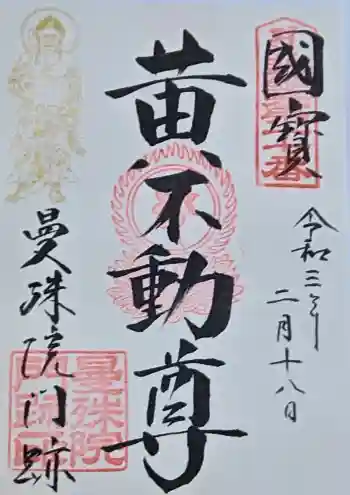 國寳
黄不動尊
令和三年
二月十八日
曼殊院門跡
曼殊院
門跡印